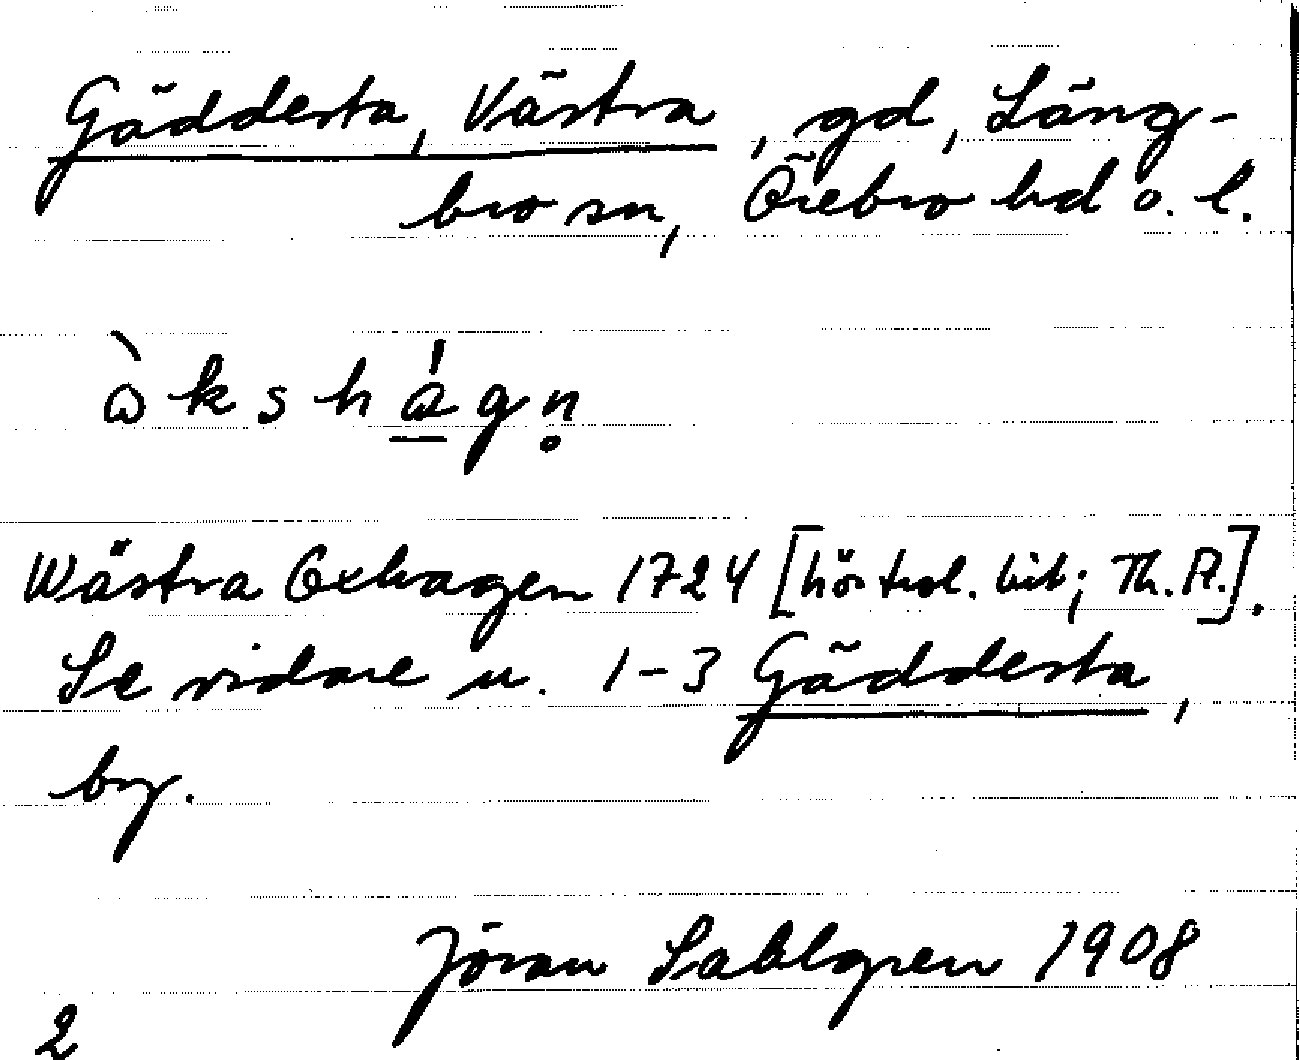 Gäddesta, Västra, gd, Läng-
bro sn, Örebro hd o. l.
ὼkshágn̥
Wästra Oxhagen 1724 [hör trol. hit; Th. R.].
Se vidare u. 1-3 Gäddesta,
by.
Jöran Sahlgren 1908
2